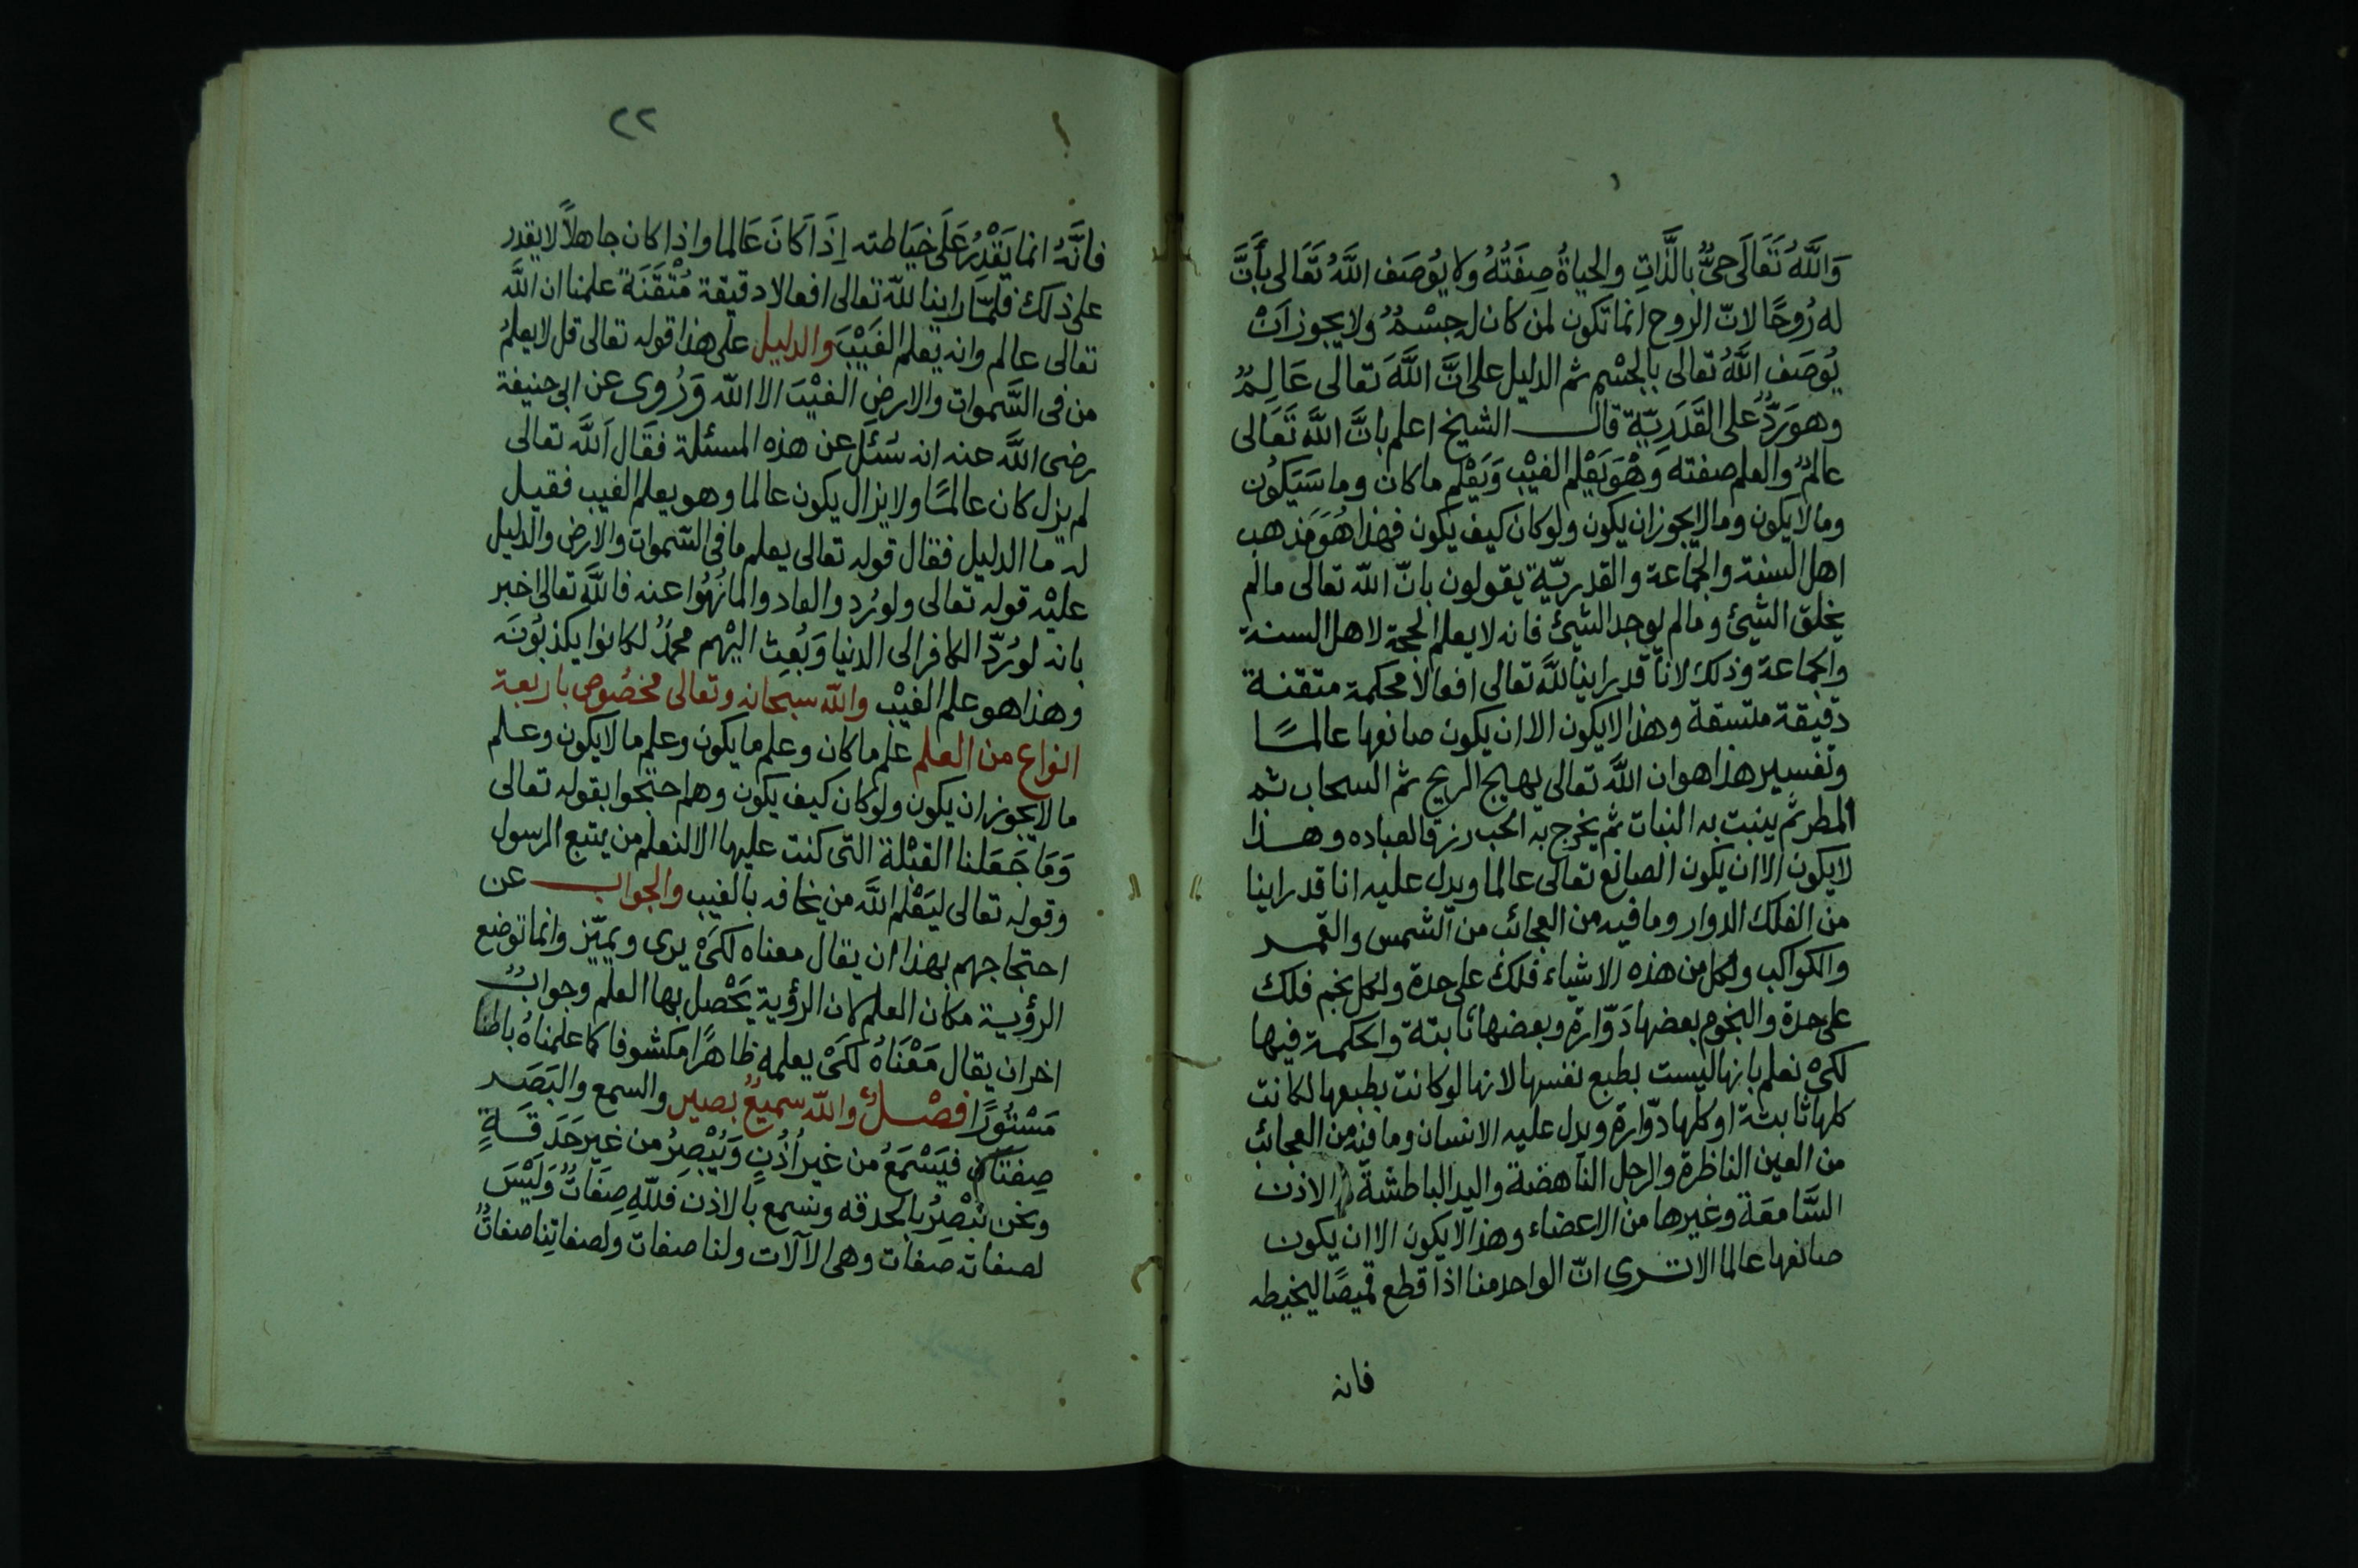 وَاللَّهُ تَعَالَى حَيٌّ بِالذَّاتِ والحياةُ صِفَتُهُ ولا يُوصَف اللَّهُ تَعَالى بأَنَّ
له رُوحًا لانّ الروح انما تكون لمن كان له جِسْمٌ ولا يجوز اَنْ
يُوصَف اللَّهُ تعالى بالجسْمِ ثم الدليل على انَّ اللَّهَ تعالى عَالِمٌ
وهو رَدٌّ على القَدَرِيّة قال الشيخ اعلم بانَّ اللَّه تَعَالى
عالمٌ والعلم صفته وَهْوَ يَعْلم الغيْب وَيَعْلم ما كان وما سَيَكُون
وما لا يكون وما لا يجوز ان يكون ولو كان كيف يكون فهذا هُوَ مَذهب
اهل السنة والجَماعة والقدريّة يقولون بانّ اللّه تعالى ما لم
يخلق الشيئ وما لم يوجد الشيئ فانه لا يعلم الحجة لاهل السنة
والجماعة وذلك لانّا قد راينا للَّه تعالى افعالا محكمة متقنة
دقيقة متسقة وهذا لا يكون الا ان يكون صانعها عالمًا
وتفسير هذا هو ان اللَّه تعالى يهيج الريح ثم السحاب ثم
المطر ثم ينبت به النبات ثم يخرج به الحب رزقا لعباده وهذا
لا يكون الا ان يكون الصانع تعالى عالما ويدل عليه انا قد راينا
من الفلك الدوار وما فيه من العجائب من الشمس والقمر
والكواكب ولكل من هذه الاشياء فلك على حدة ولكل نجم فلك
على حدة والنجوم بعضها دَوّارة وبعضها ثابتة والحكمة فيها
لكىْ نعلم بانها ليست بطبع نفسها لانها لو كانت بطبعها لكانت
كلها ثابتة او كلها دوّارة ويدل عليه الانسان وما فيه من العجائب
من العين الناظرة والرجل الناهضة واليد الباطشة والاذن
السَّامعَة وغيرها من الاعضاء وهذا لا يكون الا ان يكون
صانعها عالما الا ترى انّ الواحد منا اذا قطع قميصًا ليخيطه
فانه
٢٢
فانَّهُ انما يَقْدِرُ عَلَى خِيَاطته اِذَا كَانَ عَالما واذا كان جاهلاً لا يقدر
على ذلك فلمّا راينا للّه تعالى افعالا دقيقة مُتْقَنَة علمنا ان اللَّه
تعالى عالم وانه يَعلم الغَيْبَ والدليل على هذا قوله تعالى قل لا يعلمُ
من فى السَّموات والارضِ الغيْبَ الا اللّه وَرُوى عن ابى حنيفة
رضى اللَّه عنه انه سُئلَ عن هذه المسئلة فقال اَللَّه تعالى
لم يزل كان عالمًا ولا يزال يكون عالما وهو يعلم الغيب فقيل
له ما الدليل فقال قوله تعالى يعلم ما فى السّموات والارض والدليل
عليْه قوله تعالى ولو رُدوا لعادوا لما نُهُوا عنه فاللَّه تعالى اخبر
بانه لو رُدّ الكافر الى الدنيا وَبُعِث اليْهم محمدٌ لكانوا يكذبُونَه
وهذا هو علم الغيْب واللّه سبحانه وتعالى مخصُوص باربعة
انواع من العلم علم ما كان وعلم ما يكون وعلم ما لا يكون وعلم
ما لا يجوز ان يكون ولو كان كيف يكون وهم احتجوا بقوله تعالى
وَمَا جَعَلنا القبْلة التى كنت عليها الا لنعلم من يتبع الرسول
وقوله تعالى ليَعْلم اللَّه من يخافه بالغيب والجواب عن
احتجاجهم بهذا ان يقال معناه لكىْ يرى ويميّز وانما توضع
الرؤية مكان العلم لان الرؤية يَحْصل بها العلم وجوابٌ
اخر ان يقال مَعْنَاهُ لكىْ يعلمه ظاهرًا مكشوفا كما علمناهُ باطنا
مَسْتُورًا فصْلٌ واللّه سميعٌ بصير والسمع والبَصَر
صِفَتَان فيَسْمَعُ من غير اُذُنٍ وَيُبْصِرُ من غير حَدَقَةٍ
ونحن نُبْصِرُ بالحدقه ونسمع بالاذن فللّهِ صِفَاتٌ وَلَيْسَ
لصفاته صفات وهى الآلات ولنا صفات ولصفاتِنا صفاتٌ